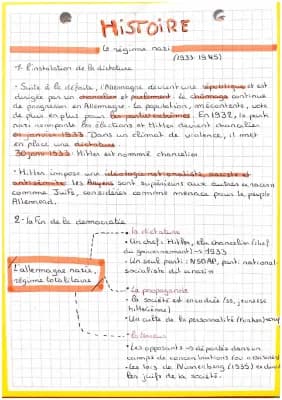 HISTOIRE
Le régime nazi
(1933-1945)
1- l'installation de la dictature
• Suite à la défaite, l'Allemagne devient une république et est
dirigée par un chancelier et parlement. Le chômage continue
de progresser en Allemagne. La population, mécontente, vote
de plus en plus pour les partis extrêmes. En 1932, le parti
nazi remporte les élections et Hitler devient chancelier
en janvier 1933. Dans un climat de violence, il met
en place une dictature
30 janv 1933: Hitler est nommé chancelier
• Hitler impose une idéologie nationaliste, raciste et
antisémite: les Aryens sont supérieurs aux autres
comme Juifs, considérés comme menace pour le peuple
Allemand.
2- la fin de la démocratie
la dictature
• Un chef: Hitler, élu chancelier (chef
du gouvernement) → 1933
• Un seul parti: NSDAP, parti national-
socialiste dit nazi
L'allemagne nazie,
régime totalitaire
la propagande
• la société est encadrée (ss, jeunesse
hitlérienne)
• Un culte de la personnalité
la terreur
• Les opposants → déportés dans un
camps de concentrations
• Les lois de Nuremberg (1935) excluent
les juifs de la société.